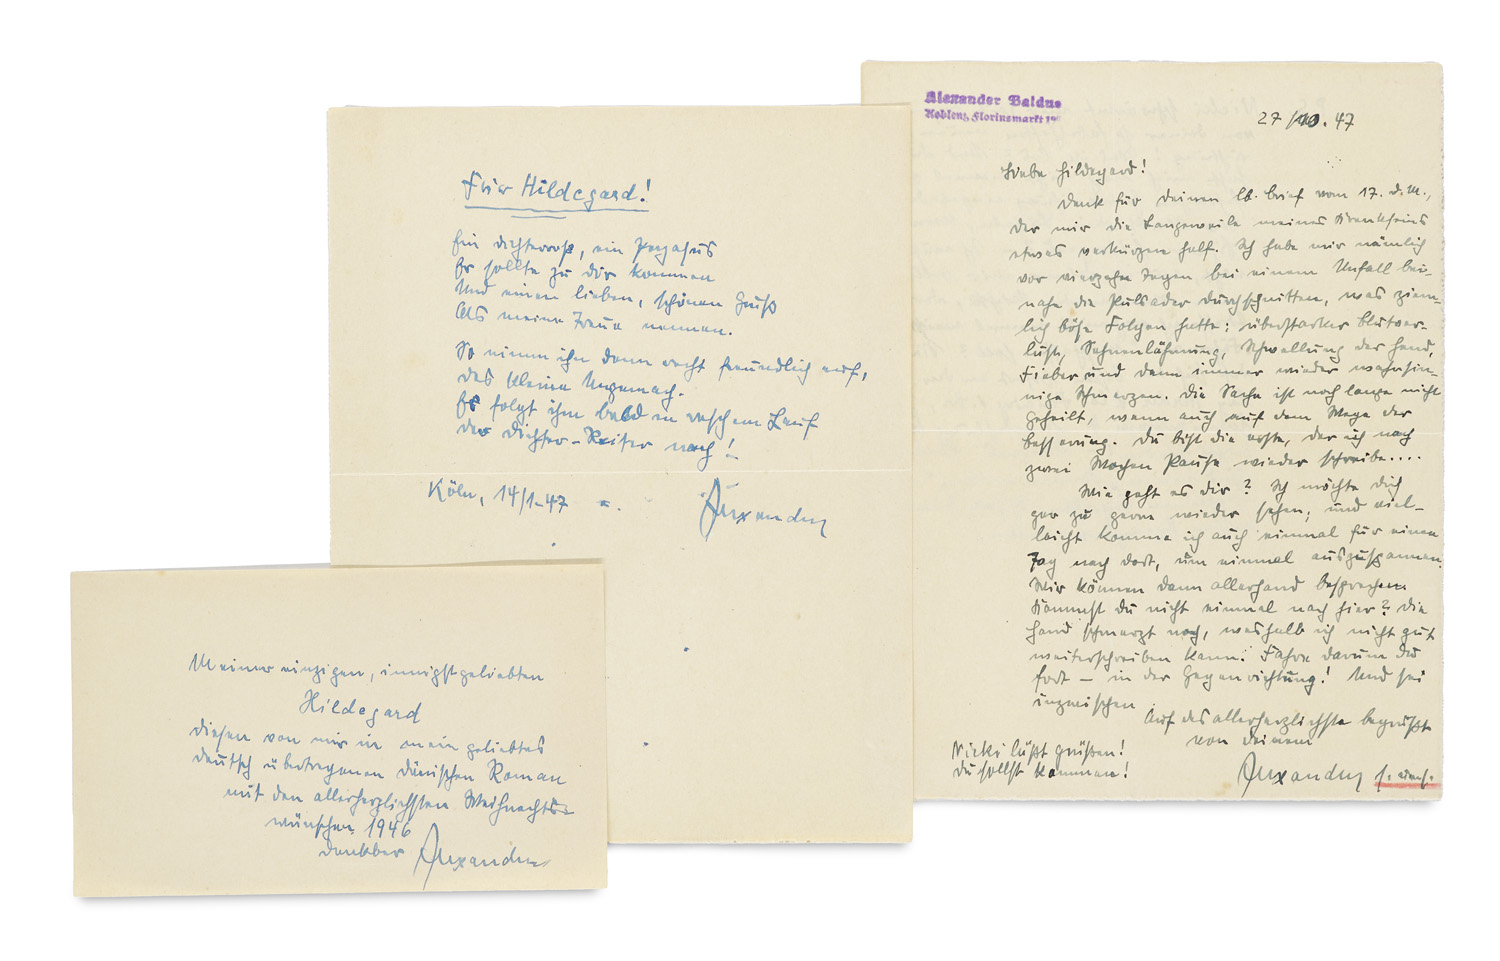 Meiner einzigen, innigstgeliebten
Hildegard
diesen von mir in mein geliebtes
Deutsch übertragenen dänischen Roman
mit den allerherzlichsten Weihnachts-
wünschen 1946
dankbar Alexander
Für Hildegard!
Ein Dichterroß, ein Pegasus
Er sollte zu dir kommen
Und einen lieben, schönen Gruß
Als meine Treue nennen.
So nimm ihn denn recht freundlich auf,
das kleine Ungemach.
Es folgt ihm bald in raschem Lauf
der Dichter-Reiter nach!
Köln, 14/1.47
Alexander
Alexander Baldus
Koblenz, Florinsmarkt
27/10.47
Liebe Hildegard!
Dank für Deinen lb. Brief vom 17. d.M.,
der mir die Langeweile meines Krankseins
etwas verkürzen half. Ich habe mir nämlich
vor vierzehn Tagen bei einem Unfall bei-
nahe die Pulsader durchschnitten, was ziem-
lich böse Folgen hatte: überstarker Blutver-
lust, Sehnenlähmung, Schwellung der Hand,
Fieber und dann immer wieder wahnsin-
nige Schmerzen. Die Sache ist noch lange nicht
geheilt, wenn auch auf dem Wege der
Besserung. Du bist die erste, der ich nach
zwei Wochen Pause wieder schreibe....
Wie geht es Dir? Ich möchte Dich
gar zu gerne wieder sehen; und viel-
leicht komme ich auch einmal für einen
Tag nach dort, um einmal auszuspannen.
Wir können dann allerhand besprechen.
Kommst Du nicht einmal nach hier? Die
Hand schmerzt noch, weshalb ich nicht gut
weiterschreiben kann. Fahre darum Du
fort – in der Gegenrichtung! Und sei
inzwischen
Auf das allerherzlichste begrüßt
von Deinem
Alexander
Nicki läßt grüßen!
Du sollst kommen!